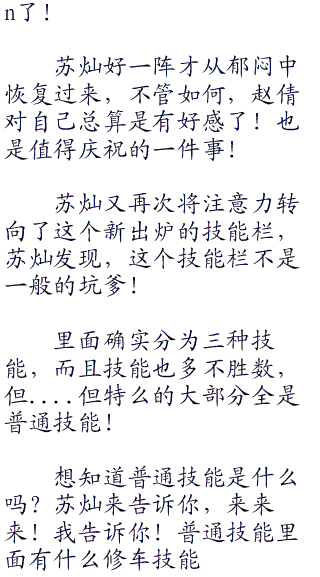 n了！
苏灿好一阵才从郁闷中
恢复过来，不管如何，赵倩
对自己总算是有好感了！也
是值得庆祝的一件事！
苏灿又再次将注意力转
向了这个新出炉的技能栏，
苏灿发现，这个技能栏不是
一般的坑爹！
里面确实分为三种技
能，而且技能也多不胜数，
但....但特么的大部分全是
普通技能！
想知道普通技能是什么
吗？苏灿来告诉你，来来
来！我告诉你！普通技能里
面有什么修车技能